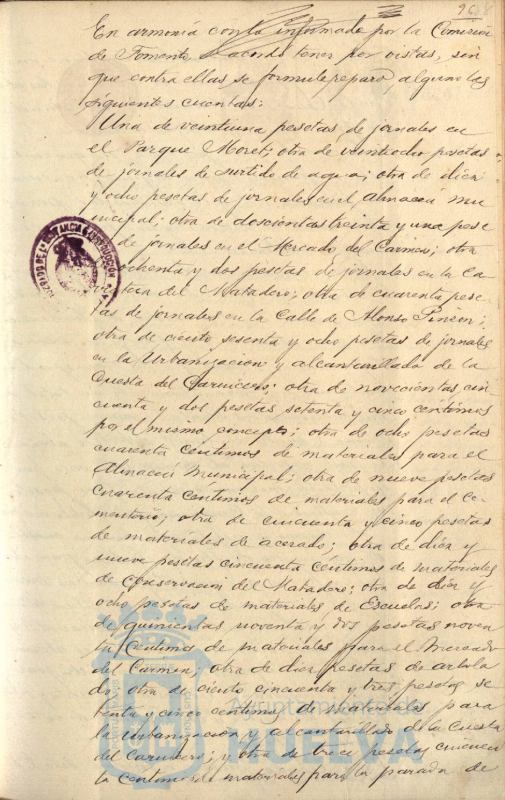 En armonía con lo informado por la Comisión
de Fomento, acordó tener por vistas, sin
que contra ellas se formule reparo alguno las
siguientes cuentas:
Una de veintiuna pesetas de jornales en
el Parque Moret; otra de veintiocho pesetas
de jornales de surtido de agua; otra de diez
y ocho pesetas de jornales en el Almacén mu
nicipal; otra de doscientas treinta y una pese
de jornales en el Mercado del Carmen; otra
ochenta y dos pesetas de jornales en la Ca
del Matadero; otra de cuarenta pese
tas de jornales en la Calle de Alonso Pinzón;
otra de ciento sesenta y ocho pesetas de jornales
en la Urbanización y alcantarillado de la
Cuesta del Carnicero; otra de novecientas cin
cuenta y dos pesetas setenta y cinco céntimos
por el mismo concepto; otra de ocho pesetas
cuarenta céntimos de materiales para el
Almacén Municipal; otra de nueve pesetas
cuarenta céntimos de materiales para el Ce
menterio; otra de cincuenta y cinco pesetas
de materiales de acerado; otra de diez y
nueve pesetas cincuenta céntimos de materiales
de conservación del Matadero; otra de diez y
ocho pesetas de materiales de Escuelas; otra
de quinientas noventa y dos pesetas noven
ta céntimos de materiales para el Mercado
del Carmen; otra de diez pesetas de arbola
do; otra de ciento cincuenta y tres pesetas se
tenta y cinco céntimos de materiales para
la Urbanización y alcantarillado de la Cuesta
del Carnicero; y otra de trece pesetas cincuen
ta céntimos de materiales para la parada de
Ayuntamiento de
HUELVA